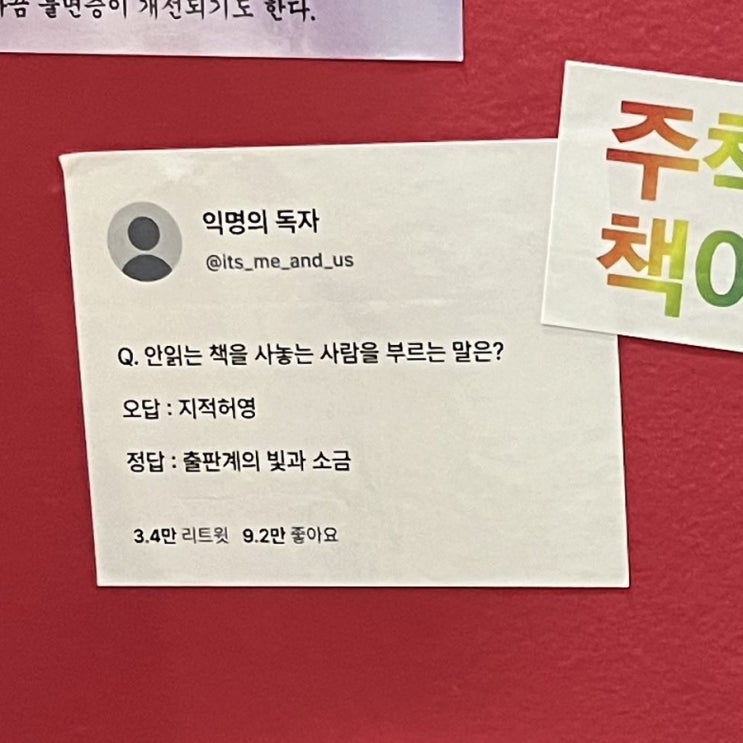 불면증이 개선되기도 한다.
익명의 독자
@its_me_and_us
Q. 안읽는 책을 사놓는 사람을 부르는 말은?
오답 : 지적허영
정답 : 출판계의 빛과 소금
3.4만 리트윗 9.2만 좋아요
주
책